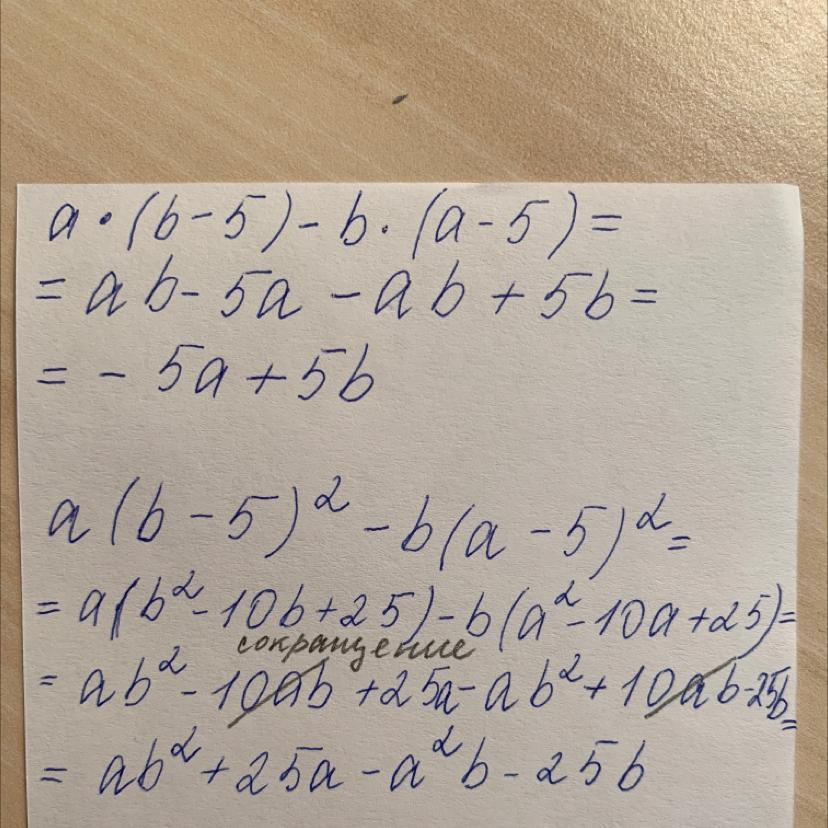 a·(b-5)-b·(a-5)=
=ab-5a-ab+5b=
=-5a+5b
a(b-5)²-b(a-5)²=
=a(b²-10b+25)-b(a²-10a+25)=
сокращение
=ab²-10ab+25a-ab²+10ab-25b=
=ab²+25a-a²b-25b